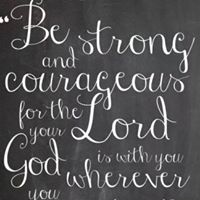 “Be strong
and
courageous
for the
your Lord
God is with you
wherever
you